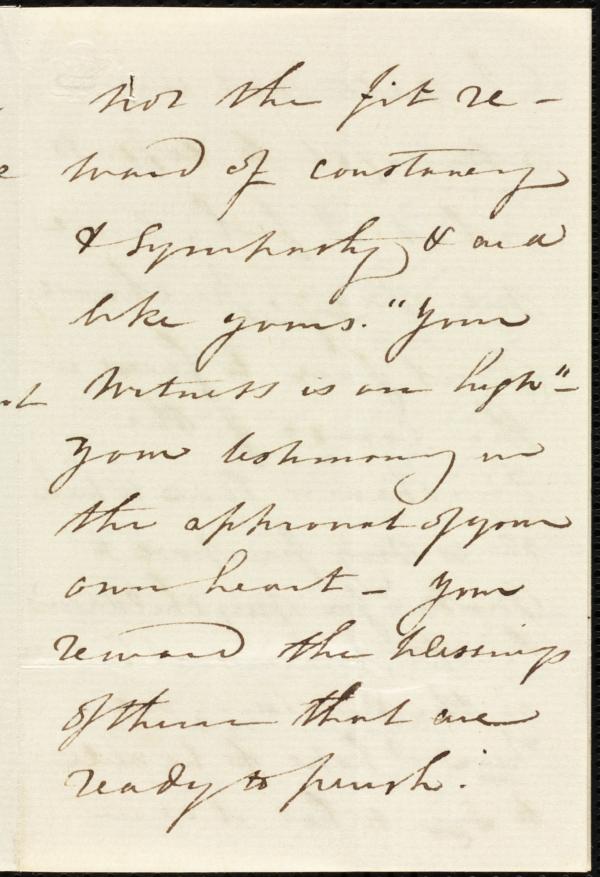 not the fit re-
ward of constancy
& sympathy & aid
like yours. "Your
Witness is on high"-
your testimony in
the approval of your
own heart - your
reward the blessings
of them that are
ready to perish.